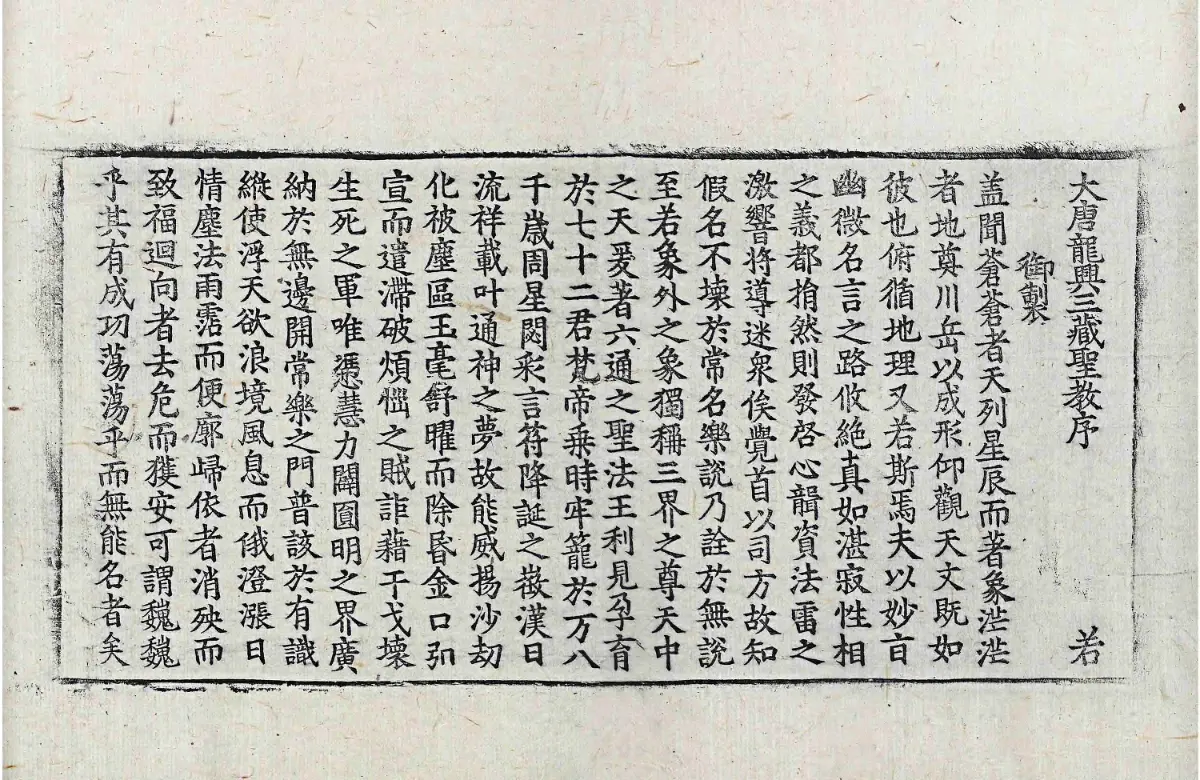 大唐龍興三藏聖教序 若
御製
盖聞蒼蒼者天列星辰而著象茫茫
者地奠川岳以成形仰觀天文既如
彼也俯循地理又若斯焉夫以妙旨
幽微名言之路攸絶真如湛寂性相
之義都捐然則發啓心韻資法雷之
激響將導迷衆俟覺首以司方故知
假名不壞於常名樂説乃詮於無説
至若象外之象獨稱三界之尊天中
之天爰著六通之聖法王利見孕育
於七十二君梵帝乗時牢籠於一万八
千歲周星閟彩言符降誕之徵漢日
流祥載叶通神之夢故能威揚沙劫
化被塵區玉毫舒曜而除昬金口弘
宣而遣滯破煩惱之賊詎藉干戈壞
生死之軍唯憑慧力闢圎明之界廣
納於無邊開常樂之門普該於有識
縱使浮天欲浪境風息而俄澄漲日
情塵法雨霑而便廓歸依者消殃而
致福迴向者去危而獲安可謂巍巍
乎其有成功蕩蕩乎而無能名者矣